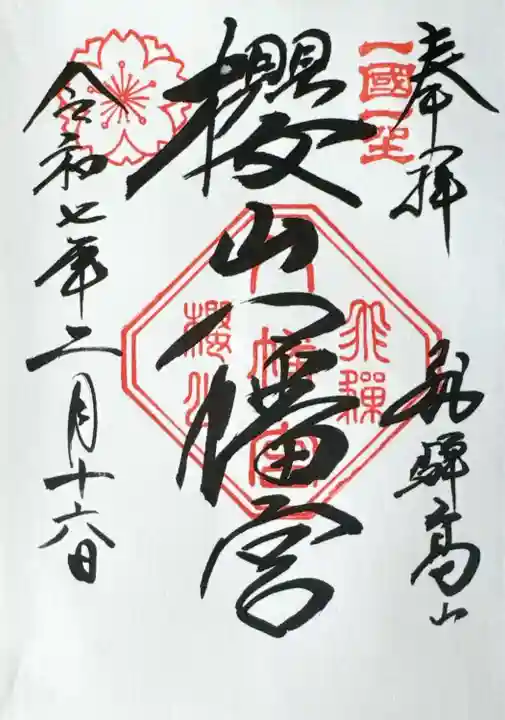 奉拝
一國一社
飛騨高山
櫻山八幡宮
飛騨
八幡宮
櫻山
令和七年二月十六日